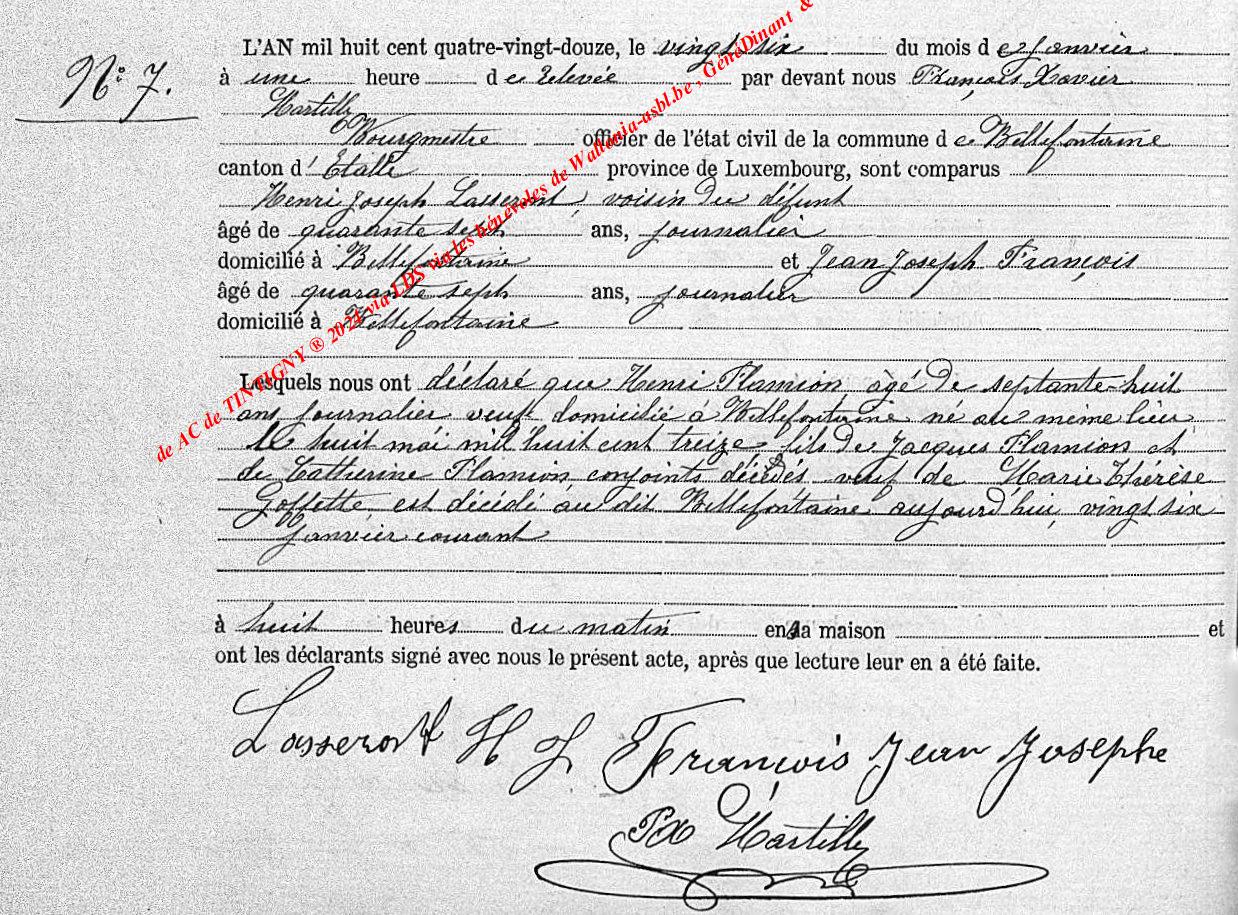 N° 7.
L'AN mil huit cent quatre-vingt-douze, le vingt six du mois de Janvier
à une heure de relevée par devant nous François Xavier
Martilly
Bourgmestre officier de l'état civil de la commune de Bellefontaine
canton d'Etalle province de Luxembourg, sont comparus
Henri Joseph Lasseront, voisin du défunt
âgé de quarante sept ans, journalier
domicilié à Bellefontaine et Jean Joseph François
âgé de quarante sept ans, journalier
domicilié à Bellefontaine
Lesquels nous ont déclaré que Henri Flamion âgé de septante-huit
ans journalier veuf domicilié à Bellefontaine né au même lieu
le huit mai mil huit cent treize fils de Jacques Flamion et
de Catherine Flamion conjoints décédés veuf de Marie Thérèse
Goffette est décédé au dit Bellefontaine aujourd'hui vingt six
Janvier courant
à huit heures du matin en sa maison et
ont les déclarants signé avec nous le présent acte, après que lecture leur en a été faite.
Lasseront H J François Jean Josephe
FX Martilly
de AC de TINTIGNY ® 2024 via LDS via les bénévoles de Wallonia-asbl.be , GénéDinant &